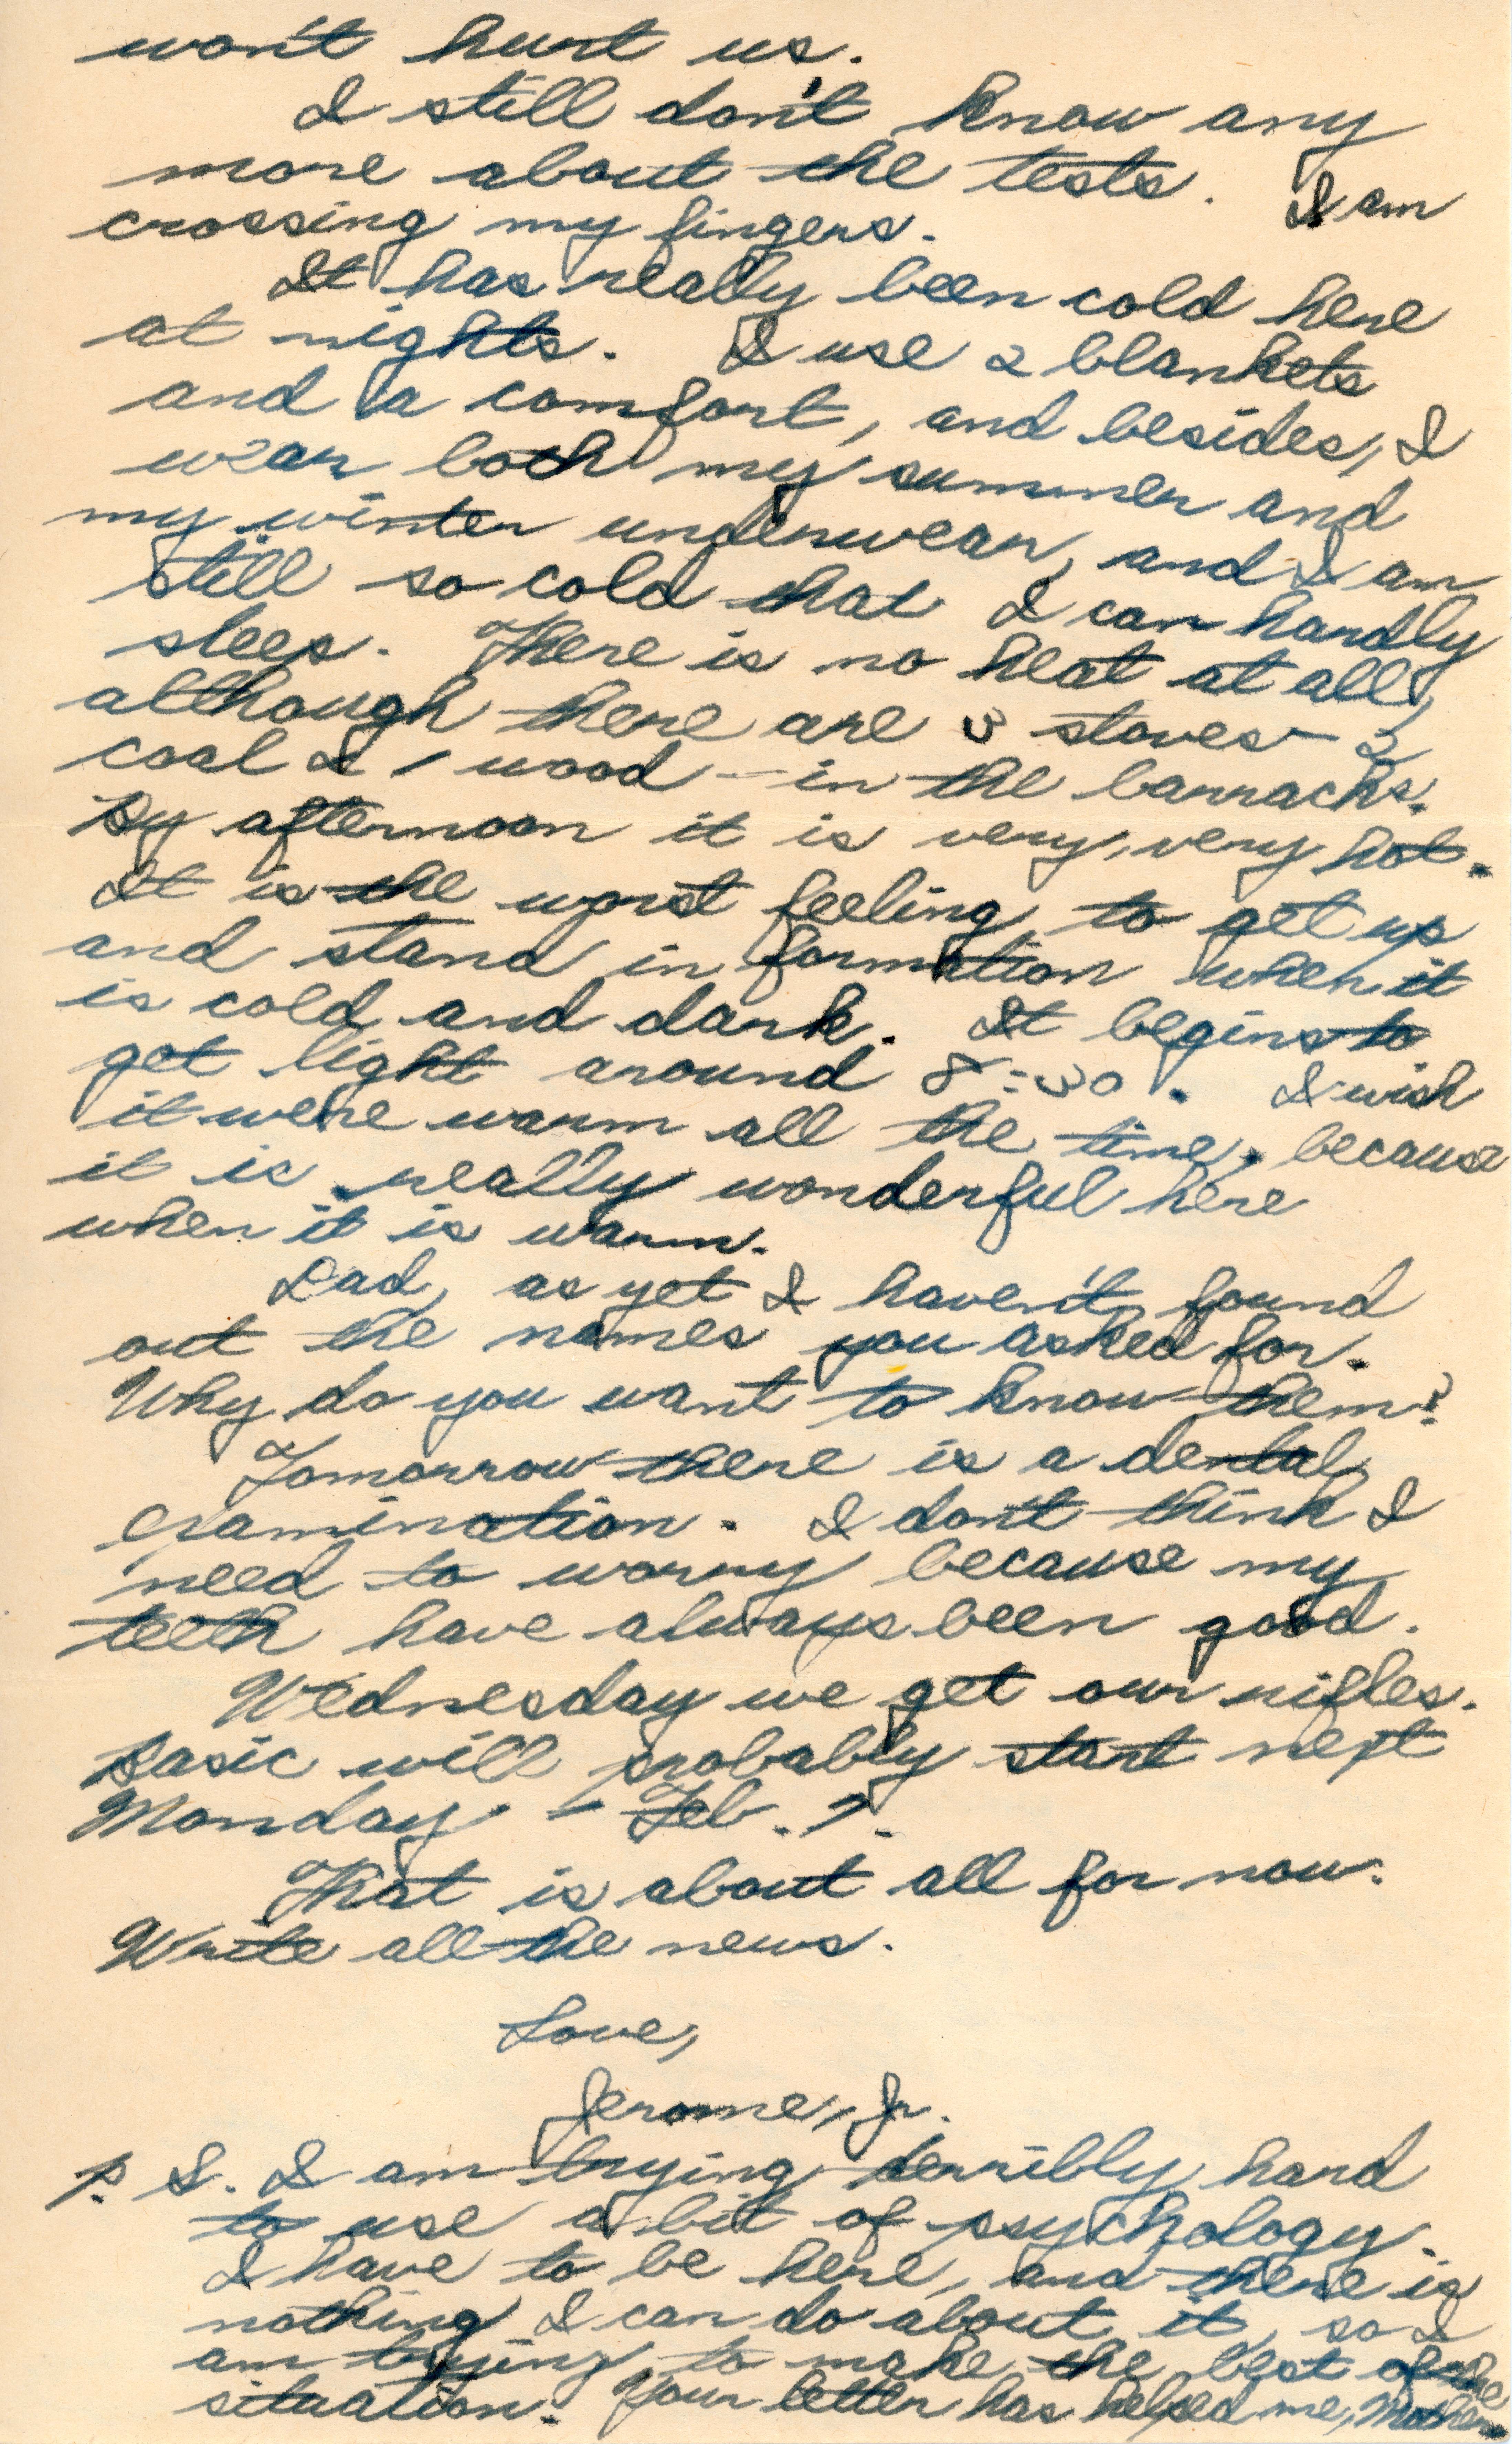 won't hurt us.
I still don't know any
more about the tests. I am
crossing my fingers.
It has really been cold here
at nights. I use 2 blankets
and a comfort, and besides, I
wear both my summer and
my winter underwear, and I am
still so cold that I can hardly
sleep. There is no heat at all,
although there are 3 stoves - 2
coal & 1 wood - in the barracks.
By afternoon it is very, very hot.
It is the worst feeling to get up
and stand in formation when it
is cold and dark. It begins to
get light around 8:30. I wish
it were warm all the time, because
it is really wonderful here
when it is warm.
Dad, as yet I haven't found
out the names you asked for.
Why do you want to know them?
Tomorrow there is a dental
examination. I don't think I
need to worry because my
teeth have always been good.
Wednesday we get our rifles.
Basic will probably start next
Monday - Feb. 7.
That is about all for now.
Write all the news.
Love,
Jerome, Jr.
P. S. I am trying terribly hard
to use a bit of psychology.
I have to be here, and there is
nothing I can do about it, so I
am trying to make the best of the
situation. Your letter has helped me, Mother.